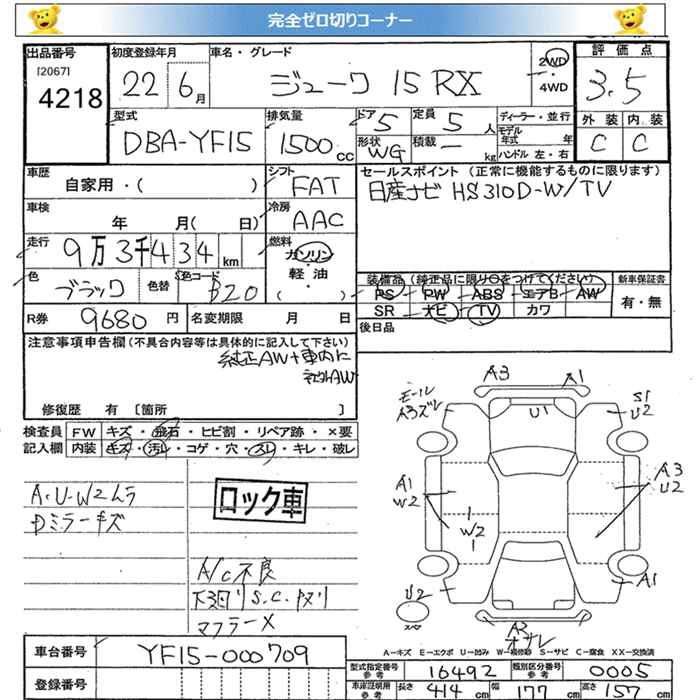 完全ゼロ切りコーナー
出品番号 初度登録年月 車名・グレード 評価点
[2067] 4218 22 6月 ジューク 15RX 2WD・4WD 3.5
型式 排気量 ドア 定員 ディーラー・並行 外装 内装
DBA-YF15 1500cc 5 5人 モデル年式 年 C C
形状 WG 積載 ー kg ハンドル 左・右
車歴 シフト セールスポイント (正常に機能するものに限ります)
自家用・( ) FAT 日産ナビ HS310D-W/TV
車検 冷房
年 月( 日) AAC
走行 燃料
9万3千434km ガソリン・軽油 ( ・ )
色 色替 色コード 装備品 (純正品に限り○をつけてください) 新車保証書
ブラック B20 PS PW ABS エアB AW 有・無
SR ナビ TV カワ
R券 9680円 名変期限 月 日 後日品
注意事項申告欄(不具合内容等は具体的に記入して下さい)
純正AW+車内に
社外AW
修復歴 有 [箇所 ]
検査員 FW キズ・飛石・ヒビ割・リペア跡・×要
記入欄 内装 キズ・汚レ・コゲ・穴・スレ・キレ・破レ
A3 A1
モール A3ズレ U1 S1 U2
A1 W2 W2 A3 U2
U2 A1
スペア A3
A・U・W2ムラ
Dミラーキズ
ロック車
A/C不良
下廻りS.C.ヌリ
マフラーメ
A−キズ E−エクボ U−凹み W−補修跡 S−サビ C−腐食 XX−交換済
車台番号 YF15-000709
型式指定番号 参考 16492 類別区分番号 参考 0005
登録番号
車庫証明用 参考 長さ 414cm 幅 177cm 高さ 157cm